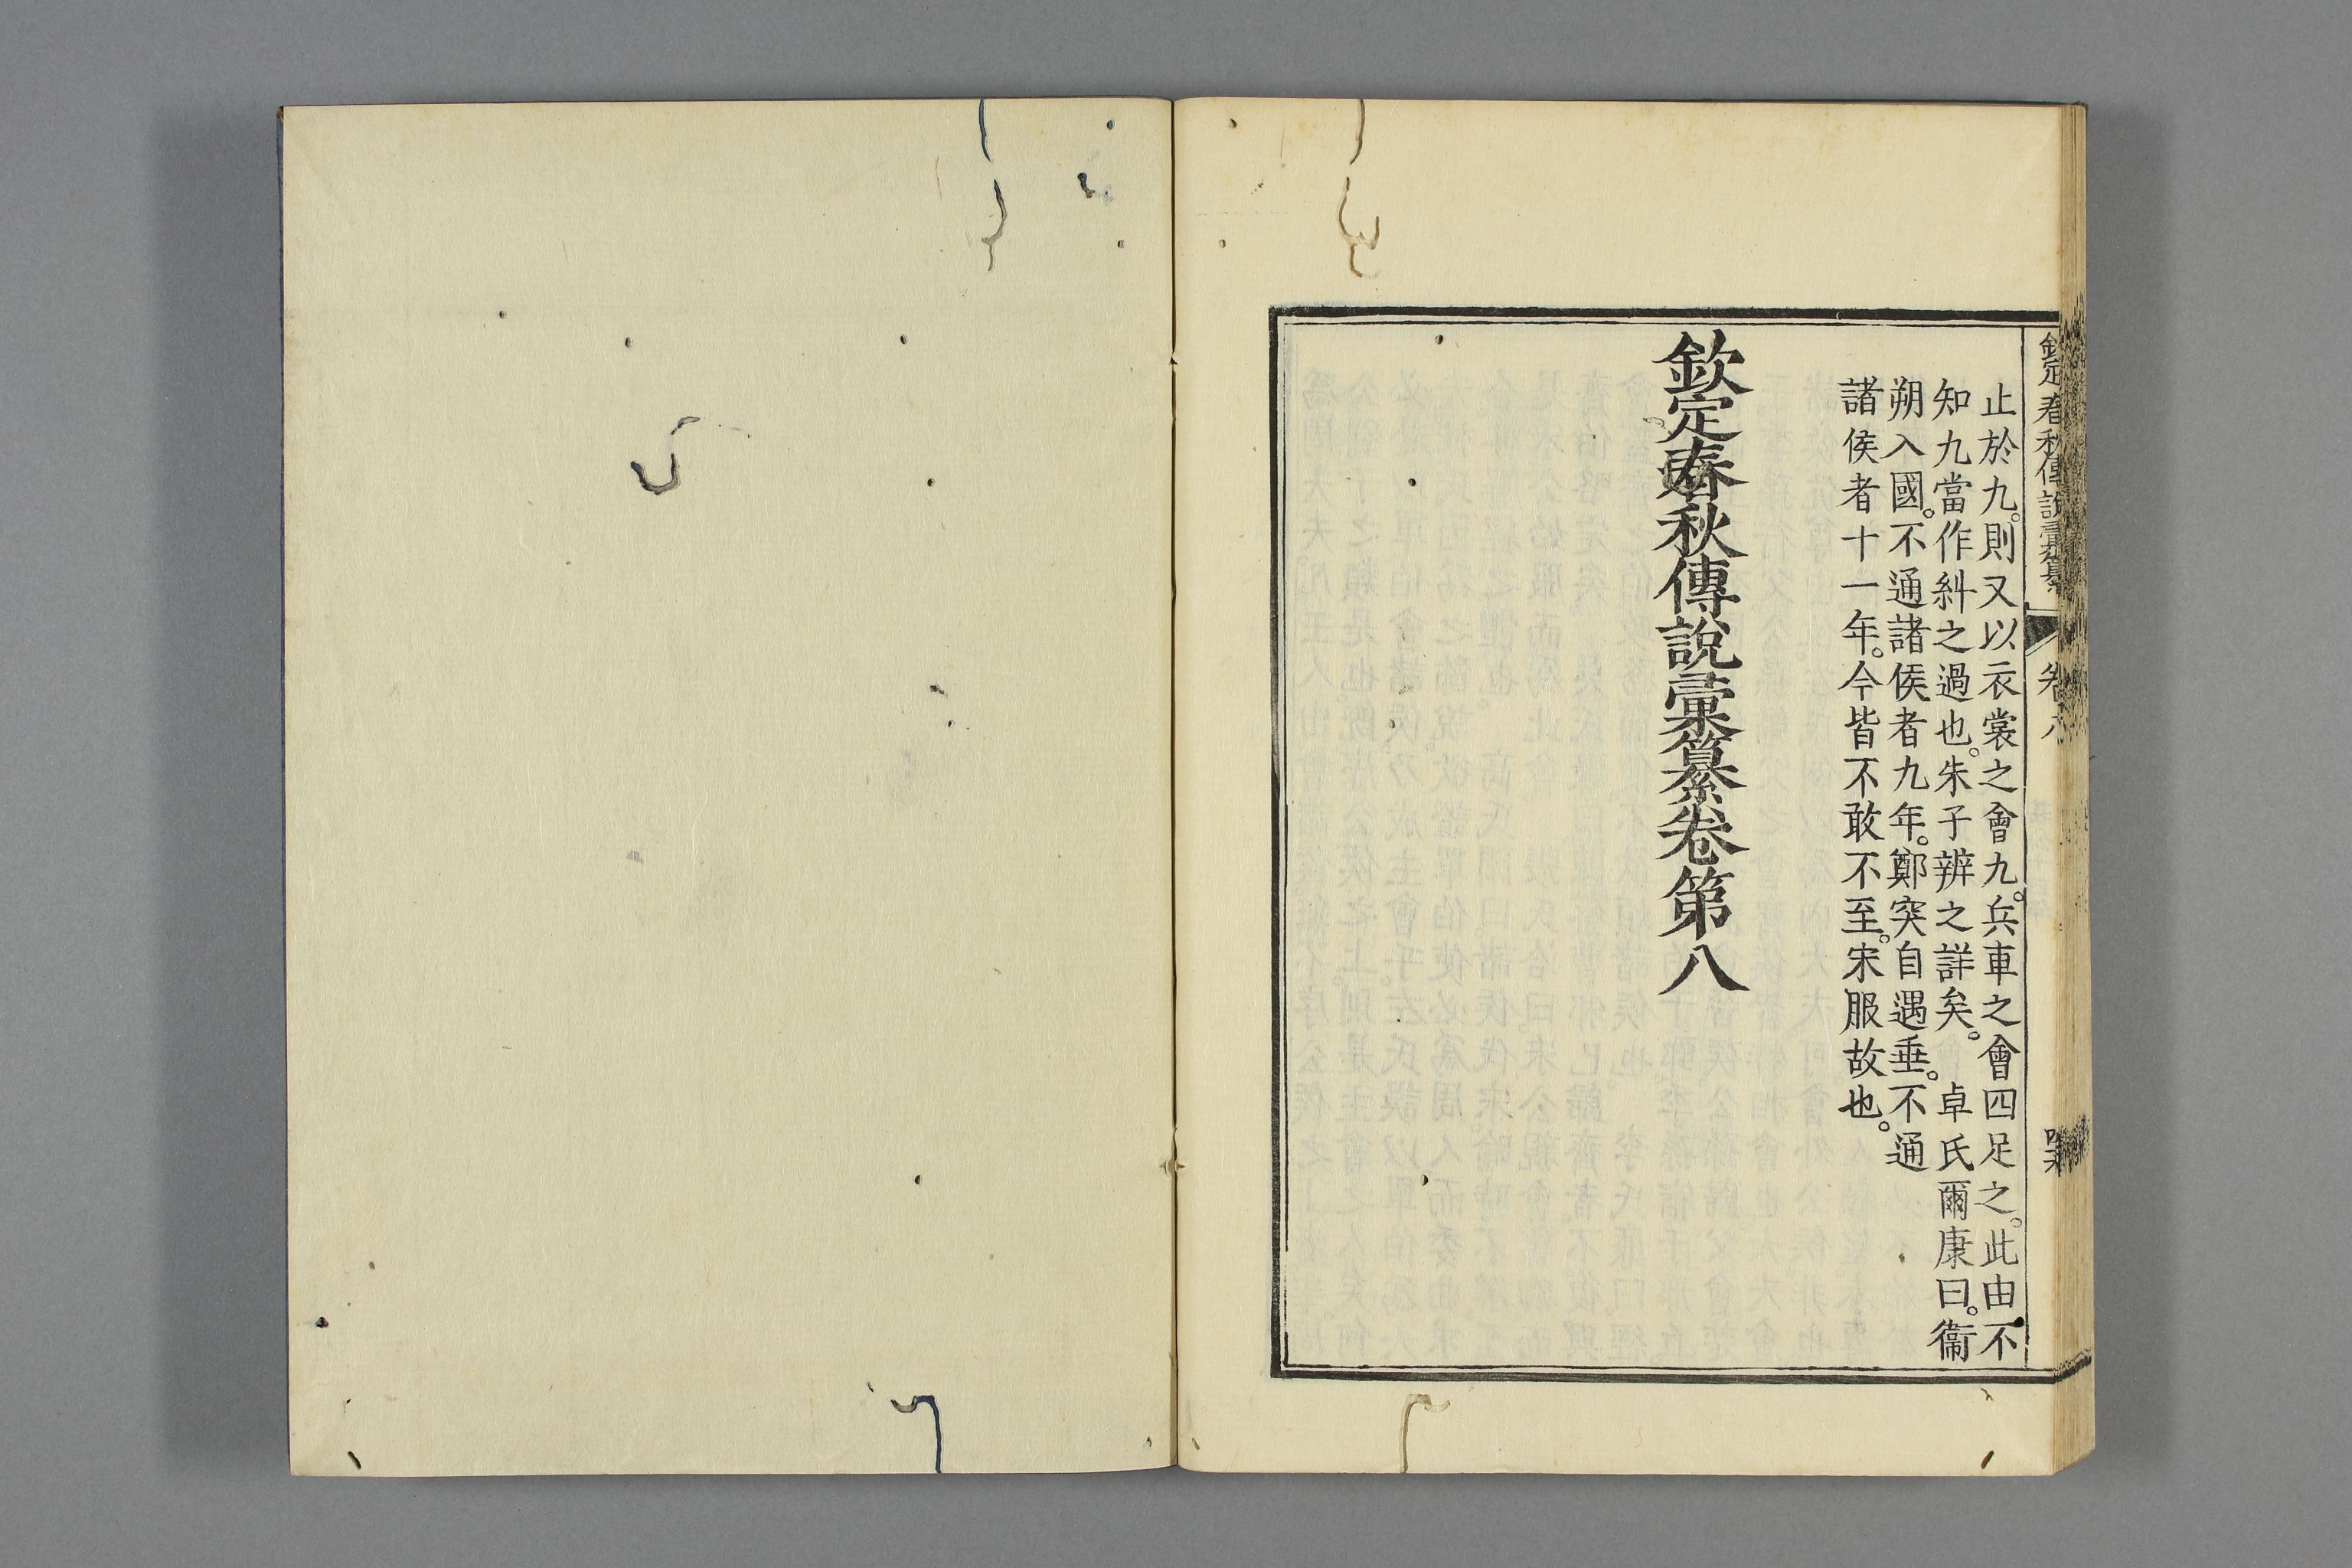 止於九。則又以衣裳之會九。兵車之會四足之。此由不
知九當作糾之過也。朱子辨之詳矣。　卓氏爾康曰。衞
朔入國。不通諸侯者九年。鄭突自遇垂。不通
諸侯者十一年。今皆不敢不至。宋服故也。
欽定春秋傳說彙纂卷第八